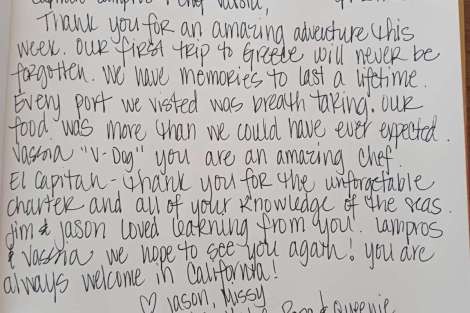 Thank you for an amazing adventure this
week. Our first trip to Greece will never be
forgotten. We have memories to last a lifetime.
Every port we visited was breath taking. Our
food was more than we could have ever expected.
"V-Dog" you are an amazing chef.
El Capitan - thank you for the unforgetable
charter and all of your knowledge of the seas.
Jim & Jason loved learning from you. Lampros
& we hope to see you again! You are
always welcome in California!
♡ Jason, Missy
& Queenie